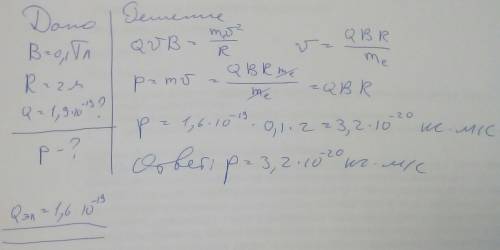 Дано
B=0,1Тл
R=2м
Q=1,9·10⁻¹⁹?
p-?
Qэл=1,6 10⁻¹⁹
Решение
QvB = mv²/R v = QBR/mₑ
p=mv = QBRmₑ/mₑ = QBR
p = 1,6·10⁻¹⁹·0,1·2=3,2·10⁻²⁰ кг·м/с
Ответ: p=3,2·10⁻²⁰ кг·м/с